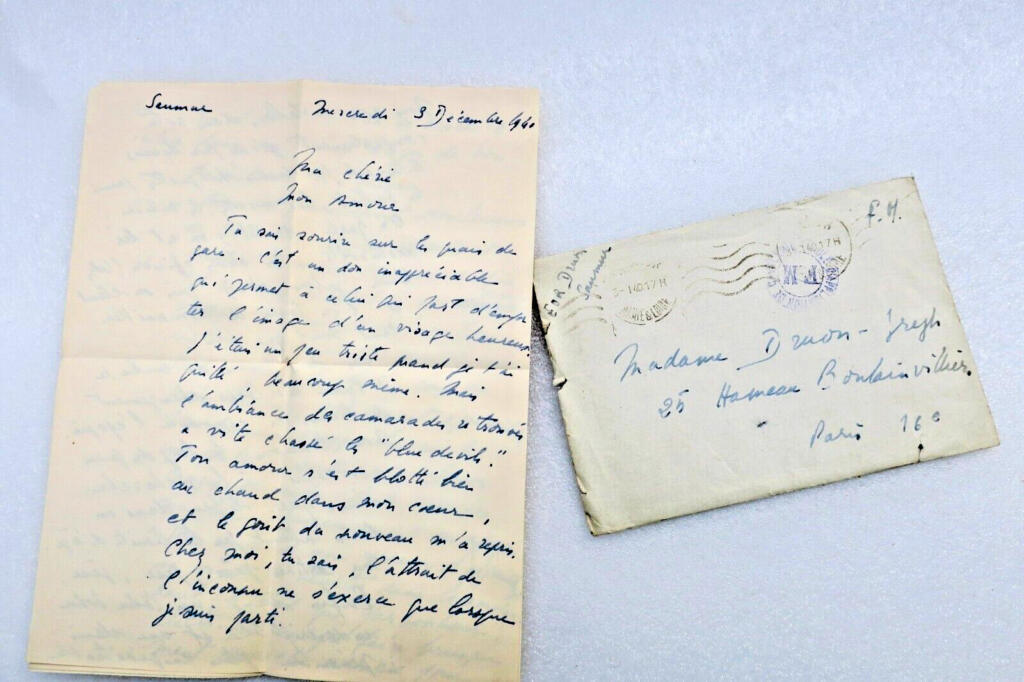 Saumur Mercredi 3 Décembre 1940
Ma chérie
Mon Amour
Tu sais sourire sur les quais de
gare. C'est un don inappréciable
qui permet à celui qui part d'empor
ter l'image d'un visage heureux.
J'étais un peu triste quand je t'ai
quitté, beaucoup même. Mais
l'ambiance des camarades retrouvés
a vite chassé les "blue devils".
Ton amour s'est blotti bien
au chaud dans mon coeur,
et le goût du nouveau m'a repris.
Chez moi, tu sais, l'attrait de
l'inconnu ne s'exerce que lorsque
je suis parti.
EOR Druon
Saumur
F.M.
140.17H
140.17H
F M
Madame Druon-Gregh
25 Hameau Boulainvilliers
Paris 16e